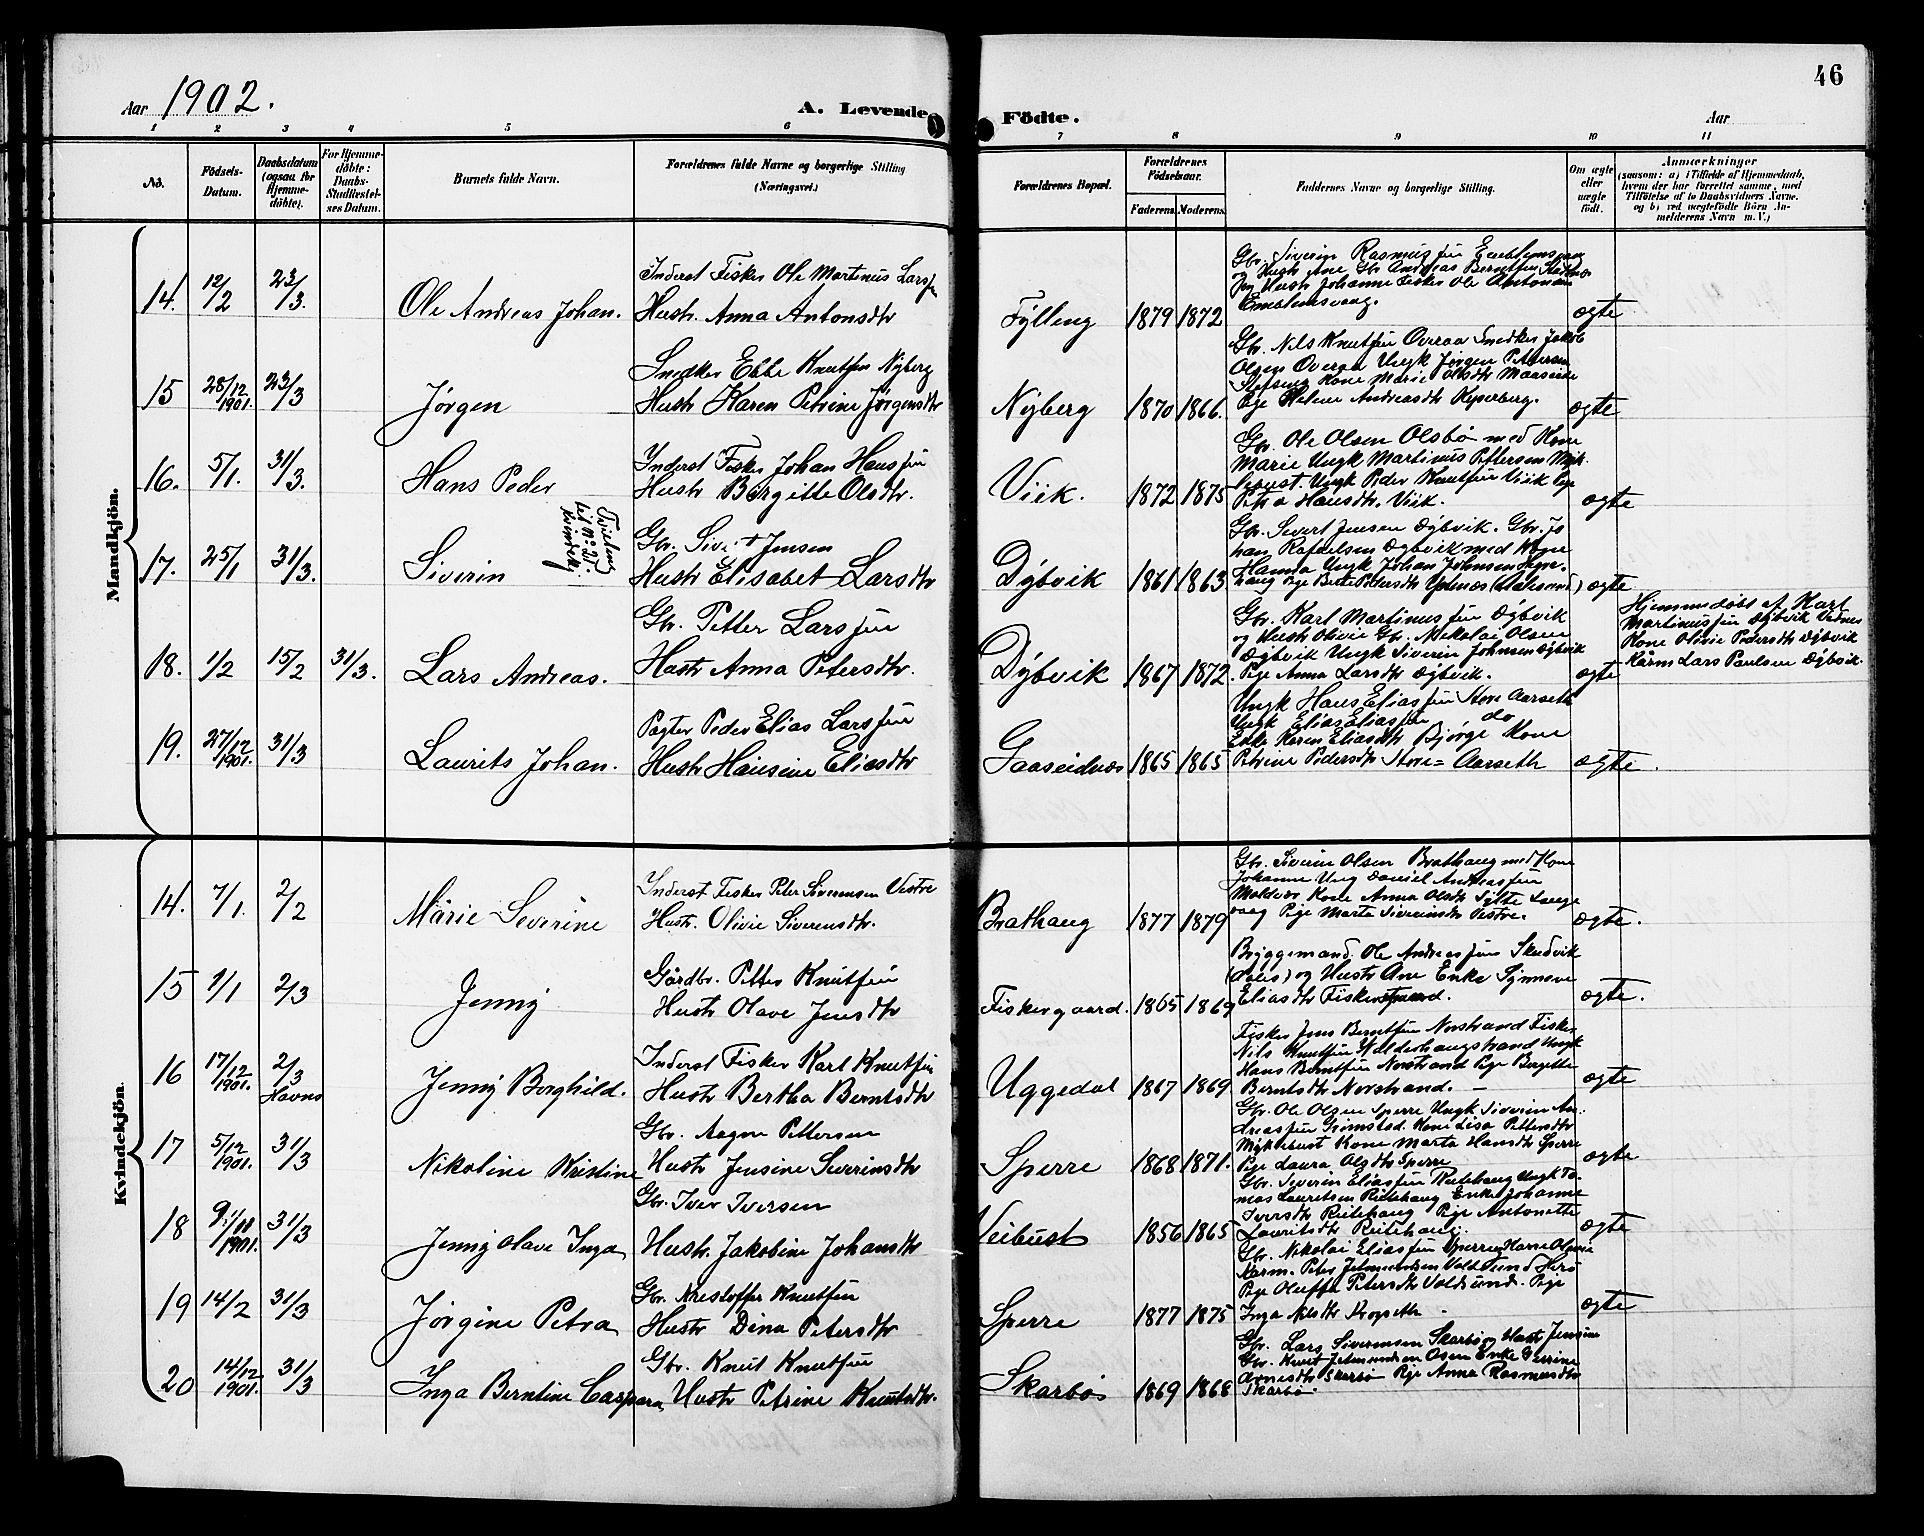 46
Aar 1902.
A. Levende Födte.
Aar
1 2 3 4 5 6 7 8 9 10 11
No.
Födsels-Datum.
Daabsdatum (ogsaa for Hjemme-döbte).
For Hjemme-döbte: Daabs-Stadfæstel-ses Datum.
Barnets fulde Navn.
Forældrenes fulde Navne og borgerlige Stilling (Næringsvei.)
Forældrenes Bopæl.
Forældrenes Födselsaar.
Faderens. Moderens.
Faddernes Navne og borgerlige Stilling.
Om ægte eller uægte födt.
Anmærkninger
(saasom: a) i Tilfælde af Hjemmedaab,
hvem der har forrettet samme, med
Tilföielse af to Daabsvidners Navne.
og b) ved uægtefödte Börn An-
melderens Navn m. V.)
Mandkjön.
14. 12/2 23/3. Ole Andreas Johan.
Inderst Fisker Ole Martinus Larssen
Hustr. Anna Antonsdtr
Fylling 1879 1872
Gbr. Siverin Rasmussen Emblemsvaag
og Hustr Ane Gbr Andreas Berntsen
og Hustr Johanne Fisker Ole Antonsen
Emblemsvaag.
ægte
15 28/12 1901. 23/3 Jørgen
Snedker Ebbe Knutsen Nyberg
Hustr Karen Petrine Jørgensdtr
Nyberg 1870 1866.
Gbr. Nils Knutsen Overaa Snedker Jakob
Olsen Overaa Ungk Jørgen Pettersen
Kone Marie Olsdtr Maaseide
Pige Helene Andreasdtr
ægte
16. 5/1. 31/3. Hans Peder
Inderst Fisker Johan Hanssen
Hustr Birgitte Olsdtr.
Viik. 1872 1875
Gbr. Ole Olsen Olsbö med Kone
Marie Ungk Martinus Pettersen Myk-
lebust. Ungk Peder Knutsen Viik Pige
Petra Hansdtr. Viik.
ægte
17. 25/1 31/3. Siverin
Tvilling til No 21. Kvindekj.
Gbr. Sivert Jensen
Hustr Elisabet Larsdtr
Dybvik 1861 1863
Gbr. Sivert Jensen Dybvik. Gbr. Jo
han Rafaelsen Dybvik med Kone
Hanna Ungk Johan Johnsen
Pige Berte Pedersdtr (Aalesund)
ægte
18. 1/2 15/2 31/3. Lars Andreas.
Gbr. Petter Larssen
Hustr Anna Petersdtr.
Dybvik 1867 1872
Gbr. Karl Martinussen Dybvik
og Hustr Olivie Gbr. Nikolai Olsen
Dybvik Ungk Siverin Johnsen Dybvik
Pige Anna Larsdtr Dybvik.
ægte
Hjemmedøbt af Karl
Martinussen Dybvik Vidner
Kone Olivie Pedersdtr Dybvik
Kårm Lars Paulsen Dybvik.
19. 27/12 1901. 31/3 Laurits Johan.
Pagter Peder Elias Larssen
Hustr Hansine Eliasdtr
Gaaseidnæs 1865 1865
Ungk Hans Eliassen Store Aarseth
Ungk Elias Eliassen do
Enke Karen Eliasdtr Bjørge Kone
Petrine Pedersdtr Store- Aarseth
ægte.
Kvindekjön.
14. 7/1. 2/2 Marie Severine
Inderst Fisker Peter Siverinsen Vestre
Hustr. Olivie Siverensdtr.
Brathaug 1877 1879
Gbr. Siverin Olsen Brathaug med Kone
Johanne Ung Daniel Andreassen
Molvær Kone Anna Olsdtr Sylte Lange
vaag Pige Marta Siverinsdtr Vestre.
ægte.
15 1/1 2/3 Jenny
Gårdbr. Petter Knutsen
Hustr Olave Jensdtr
Fiskergaard. 1865 1869
Bryggemand. Ole Andreassen Skudvik
(Aales) og Hustr Ane Enke Synneve
Eliasdtr Fiskergaard.
ægte.
16 17/12 1901. 2/3 Havns Jenny Borghild.
Inderst Fisker Karl Knutsen
Hustr Bertha Berntsdtr
Uggedal 1867 1869
Fisker Jens Berntsen Norstrand Fisker
Nils Knutsen Valderhaugstrand Ungk
Hans Berntsen Norstrand Pige Bergitte
Berntsdtr Norstrand.
ægte
17 5/12 1901. 31/3 Nikoline Kristine
Gbr. Aagen Pettersen
Hustr Jensine Severinsdtr
Sperre 1868 1871.
Gbr. Ole Olsen Sperre Ungk Siverin An-
dreassen Grimstad Kone Lisa Pettersdtr
Myklebust Kone Marta Hansdtr Sperre
Pige Laura Olsdtr Sperre
ægte
18 9/11 1901. 31/3 Jenny Olave Inga
Gbr. Iver Iversen
Hustr. Jakobine Johansdtr
Veibust 1856 1865
Gbr. Severin Eliassen Reitehaug Ungk To-
mas Lauritsen Reitehaug Enke Johanne
Iversdtr Reitehaug Pige Antonette
Lauritsdtr Reitehaug.
ægte
19 14/2 31/3 Jørgine Petra
Gbr. Kristoffer Knutsen
Hustr Dina Petersdtr
Sperre 1877 1875
Gbr. Nikolai Eliassen Sperre Kone Olave
Karm. Peter Jetmundsen Voldsund Herö
Pige Oluffa Petersdtr Voldsund. Pige
Inga Nilsdtr Kopseth
ægte
20 14/12 1901. 31/3 Inga Berntine Caspara
Gbr. Knut Knutsen
Hustr Petrine Knutsdtr.
Skarbö 1869 1868
Gbr. Lars Siverinsen Skarbö og Hustr Jensine
Gbr. Knut Jetmundsen Osen Enke
Arnesdtr Skarbö Pige Anna Rasmusdtr
Skarbö.